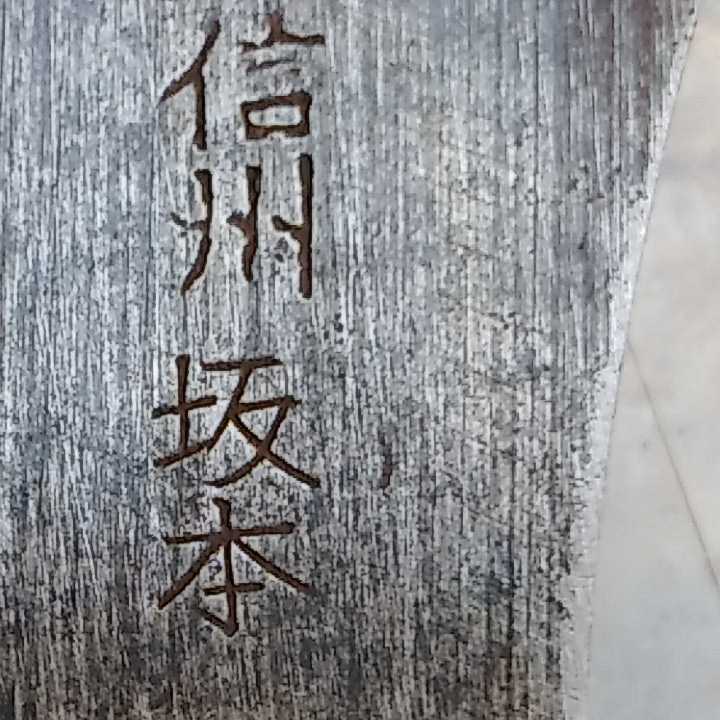 信州 坂本